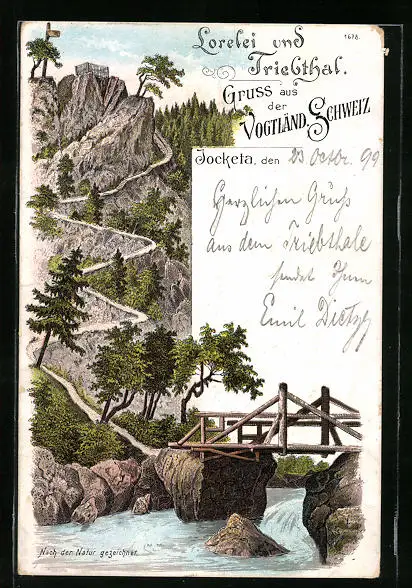 1678.
Lorelei und
Triebthal.
Gruss aus
der
Vogtländ. Schweiz
Jocketa, den 23 Octbr. 99
Herzlichen Gruß
aus dem Triebthale
sendet Ihnen
Emil Dietzs
Nach der Natur gezeichnet.